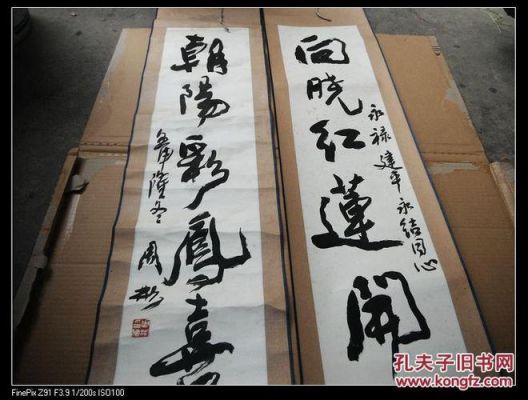 向晓红莲開
永禄 建平 永结同心
朝陽彩鳳喜
隆冬
周彬
孔夫子旧书网
www.kongfz.com
FinePix Z91 F3.9 1/200s ISO100